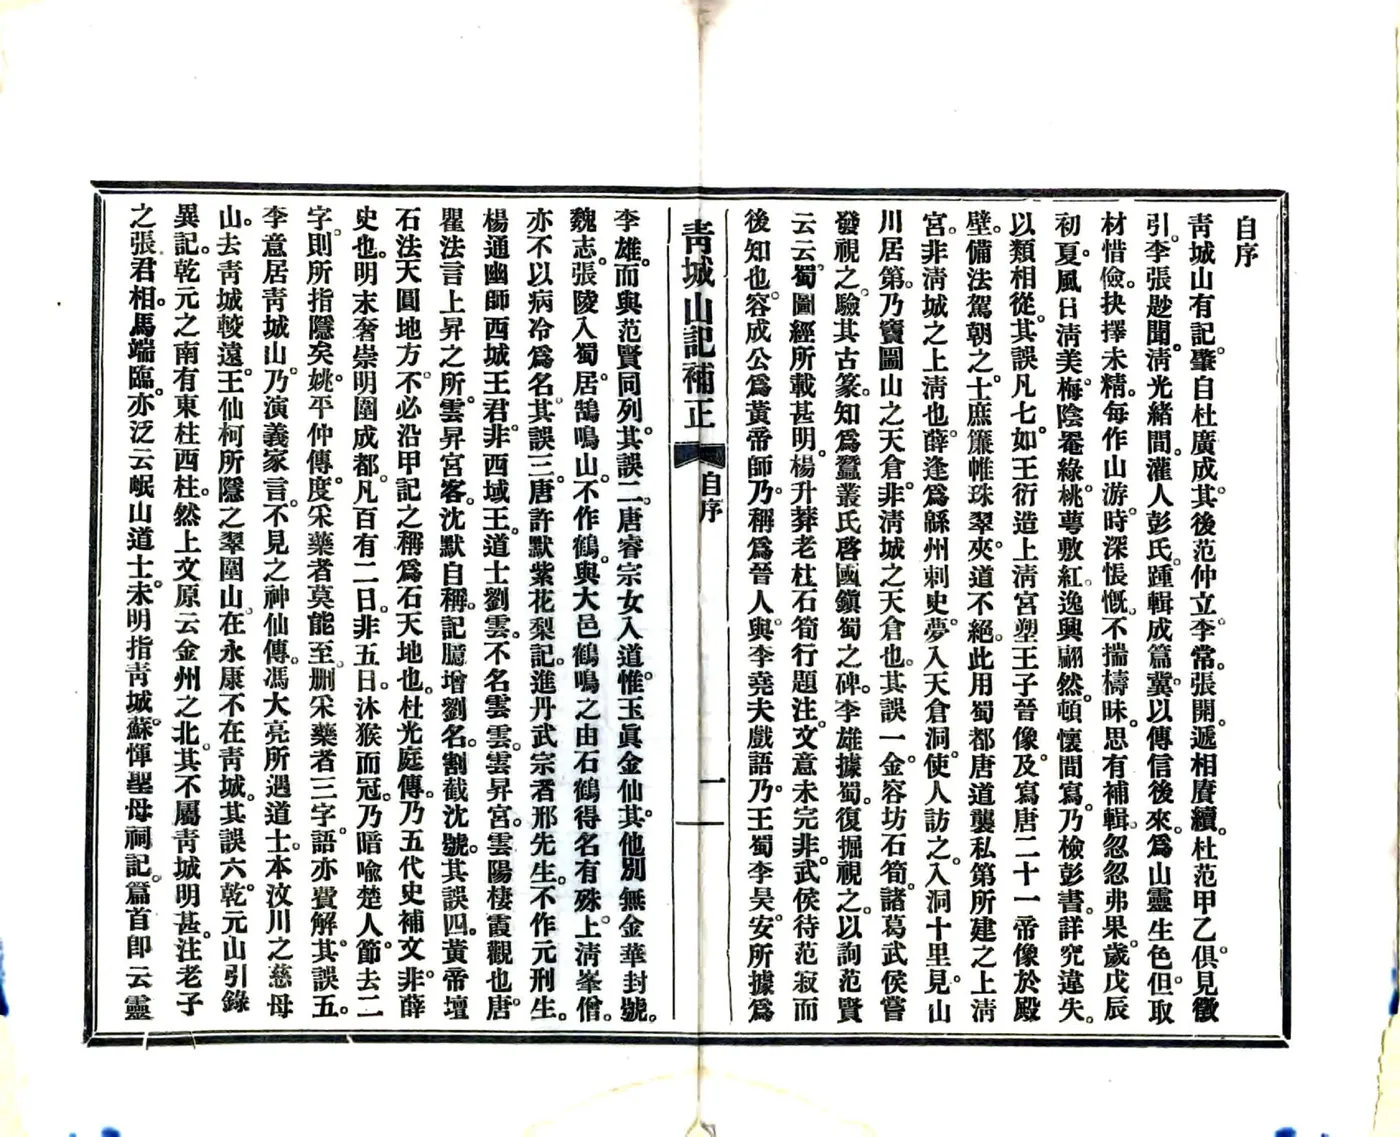 自序
靑城山有記。肇自杜廣成。其後范仲立。李常。張開。遞相賡續。杜范甲乙。俱見徵
引。李張尟聞。淸光緖間。灌人彭氏。踵輯成篇。冀以傳信後來。爲山靈生色。但取
材惜儉。抉擇未精。每作山游。時深悵慨。不揣檮昧。思有補輯。忽忽弗果。歲戊辰
初夏。風日淸美。梅陰罨綠。桃萼敷紅。逸興翩然。頓懷間寫。乃檢彭書。詳究違失。
以類相從。其誤凡七。如王衍造上淸宮。塑王子晉像。及寫唐二十一帝像於殿
壁。備法駕朝之。士庶簾帷珠翠。夾道不絕。此用蜀都唐道襲私第所建之上淸
宮。非淸城之上淸也。薛逢爲緜州刺史。夢入天倉洞。使人訪之。入洞十里。見山
川居第。乃竇圖山之天倉。非淸城之天倉也。其誤一。金容坊石筍。諸葛武侯嘗
發視之。驗其古篆。知爲蠶叢氏啓國鎭蜀之碑。李雄據蜀。復掘視之。以詢范賢
云云。蜀圖經所載甚明。楊升莽老杜石筍行題注。文意未完。非武侯待范寂而
後知也。容成公爲黃帝師。乃稱爲晉人。與李堯夫戲語。乃王蜀李昊安。所據爲
靑城山記補正
自序
一
李雄。而與范賢同列。其誤二。唐睿宗女入道。惟玉眞金仙。其他別無金華封號。
魏志。張陵入蜀。居鵠鳴山。不作鶴。與大邑鶴鳴之由石鶴得名有殊。上淸峯僧。
亦不以病冷爲名。其誤三。唐許默紫花梨記。進丹武宗者邢先生。不作元刑生。
楊通幽師西城王君。非西域王。道士劉雲。不名雲雲。雲昇宮。雲陽棲霞觀也。唐
瞿法言上昇之所。雲昇宮客。沈默自稱。記臆增劉名。割截沈號。其誤四。黃帝壇
石法天圓地方。不必沿甲記之稱爲石天地也。杜光庭傳。乃五代史補文。非薛
史也。明末奢崇明圍成都。凡百有二日。非五日。沐猴而冠。乃暗喩楚人。節去二
字。則所指隱矣。姚平仲傳。度采藥者莫能至。刪采藥者三字。語亦費解。其誤五。
李意居靑城山。乃演義家言。不見之神仙傳。馮大亮所遇道士。本汶川之慈母
山。去靑城較遠。王仙柯所隱之翠圍山。在永康不在靑城。其誤六。乾元山引錄
異記。乾元之南有東柱西柱。然上文原云金州之北。其不屬靑城明甚。注老子
之張君相。馬端臨。亦泛云岷山道士。未明指靑城。蘇惲聖母祠記。篇首卽云靈